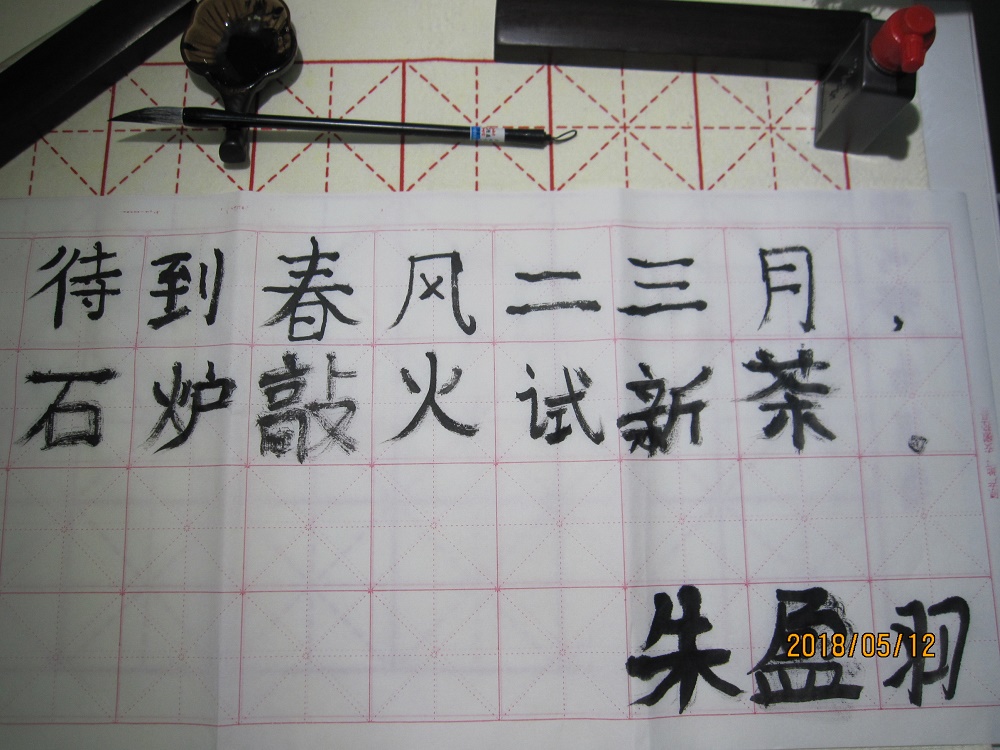 待到春风二三月，
石炉敲火试新茶。
朱盈羽
2018/05/12